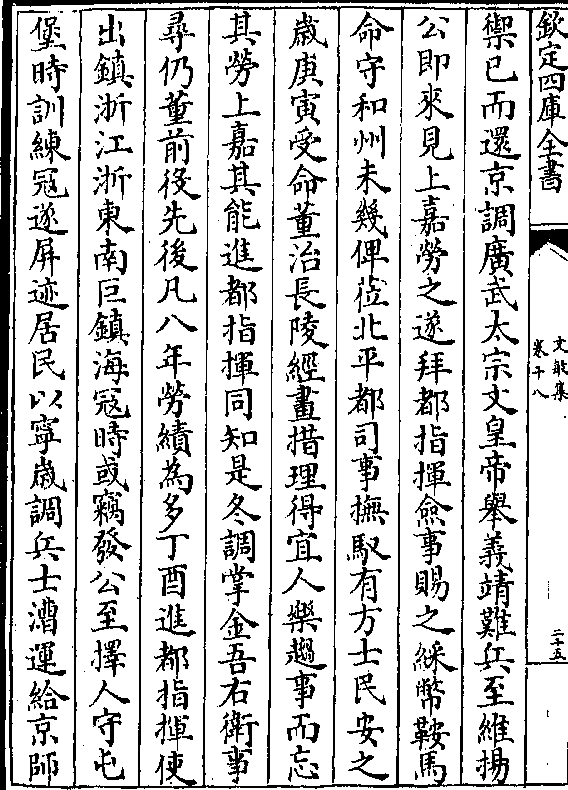 欽定四庫全書
文敏集
卷十八
二十五
禦已而還京調廣武太宗文皇帝舉義靖難兵至維揚
公即來見上嘉勞之遂拜都指揮僉事賜之綵幣鞍馬
命守和州未幾俾蒞北平都司事撫馭有方士民安之
歲庚寅受命董治長陵經畫措理得宜人樂趨事而忘
其勞上嘉其能進都指揮同知是冬調掌金吾右衛事
尋仍董前役先後凡八年勞績為多丁酉進都指揮使
出鎮浙江浙東南巨鎮海冦時或竊發公至擇人守屯
堡時訓練冦遂屏迹居民以寧歲調兵士漕運給京師